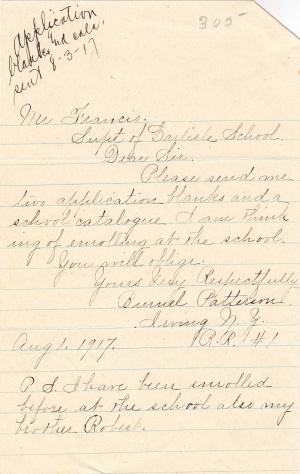 Application
blanks and cata.
sent 8-3-17
305
Mr Francis.
Supt of Carlisle School.
Dear Sir.
Please send me
two application blanks and a
school catalogue I am think
ing of enrolling at the school.
You will oblige.
Yours Very Respectfully
Burnel Patterson
Irving N.Y.
Aug 1. 1917. R.R. #1
P.S. I have been enrolled
before at the school also my
brother Robert.